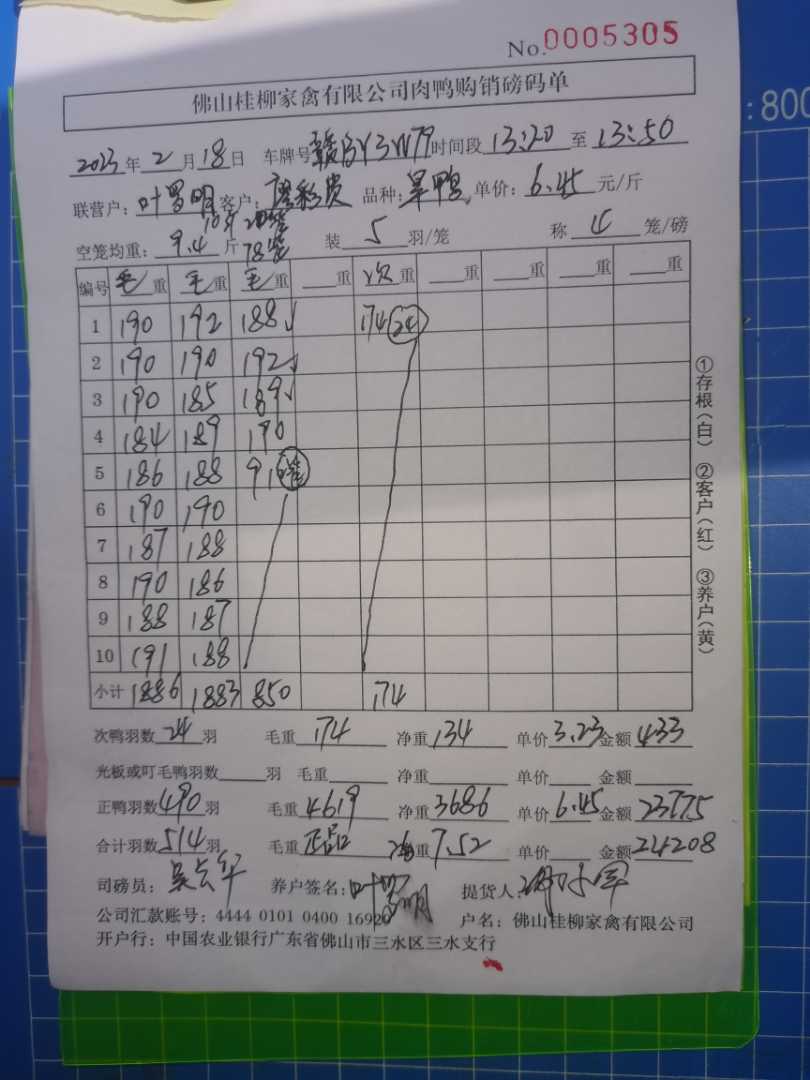 No.0005305
:800
佛山桂柳家禽有限公司肉鸭购销磅码单
2023年2月18日 车牌号 赣BY3W79 时间段 13:20 至 13:50
联营户: 叶 明 客户: 彩贵 品种: 旱鸭 单价: 6.45 元/斤
空笼均重: 9.4 斤 78笼 装 5 羽/笼 称 4 笼/磅
编号 毛重 毛重 毛重 重 次重 重 重 重 重
1 190 192 188 174 24
2 190 190 192
3 190 185 189
4 184 189 190
5 186 188 91
6 190 190
7 187 188
8 190 186
9 188 187
10 191 188
小计 1886 1883 850 174
次鸭羽数 24 羽 毛重 174 净重 134 单价 3.23 金额 433
光板或叮毛鸭羽数 羽 毛重 净重 单价 金额
正鸭羽数 490 羽 毛重 4619 净重 3686 单价 6.45 金额 23775
合计羽数 514 羽 毛重 正品 重 7.52 单价 金额 24208
司磅员: 吴 军 养户签名: 叶 明 提货人:
公司汇款账号: 4444 0101 0400 16920 户名: 佛山桂柳家禽有限公司
开户行: 中国农业银行广东省佛山市三水区三水支行
①存根(白) ②客户(红) ③养户(黄)